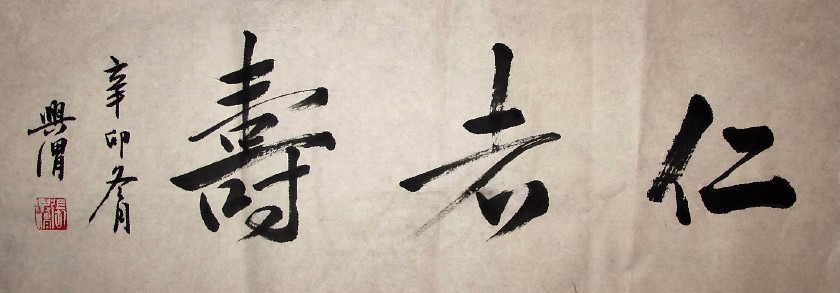 仁者壽
辛卯冬月
興渭